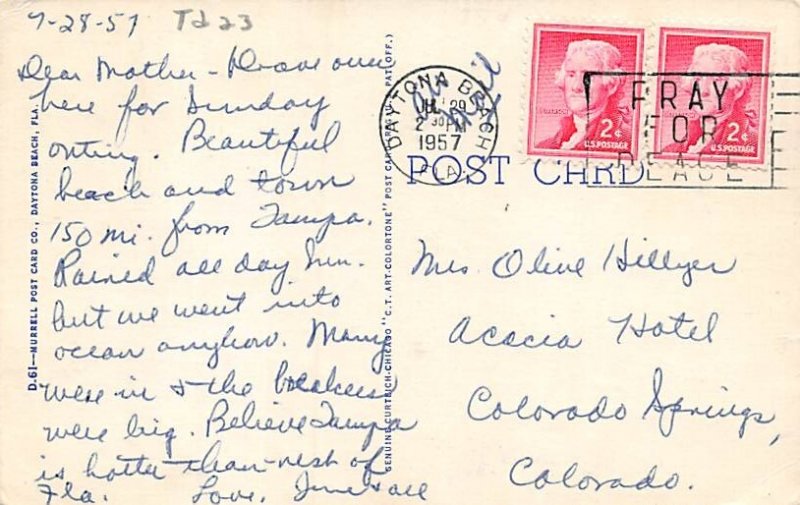 7-28-57 Td 23
Dear Mother - Drove over
here for Sunday
outing. Beautiful
beach and town
150 mi. from Tampa.
Rained all day Sun.
but we went into
ocean anyhow. Many
were in & the breakers
were big. Believe Tampa
is hotter than rest of
Fla. Love, June & all
D.61—MURRELL POST CARD CO., DAYTONA BEACH, FLA.
GENUINE CURTEICH-CHICAGO "C.T. ART-COLORTONE" POST CARD (REG. U.S. PAT. OFF.)
Air Mail
DAYTONA BEACH
JUL 29
2 30 PM
1957
FLA.
2¢
U.S. POSTAGE
2¢
U.S. POSTAGE
PRAY
FOR
PEACE
POST CARD
Mrs. Olive Hillyer
Acacia Hotel
Colorado Springs,
Colorado.